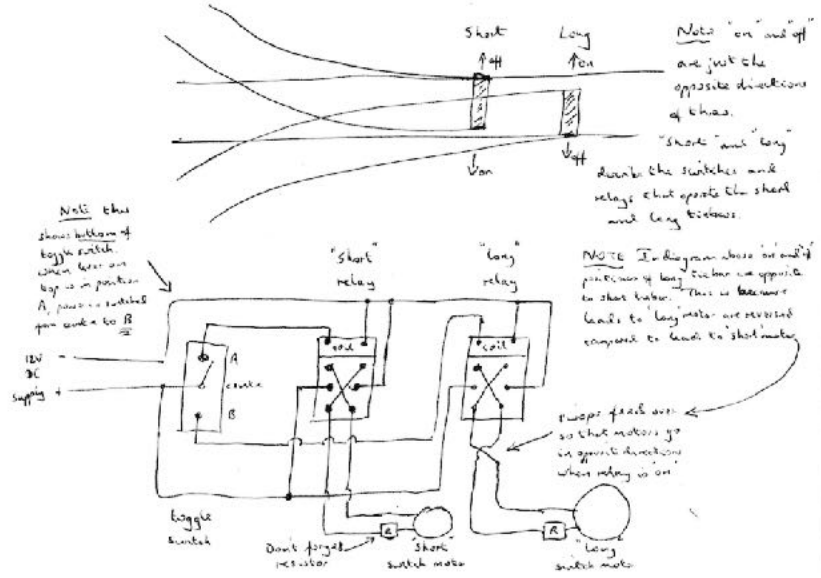 Short
Long
off
on
on
off
Note "on" and "off"
are just the
opposite directions
of throw.
"Short" and "long"
describe the switches and
relays that operate the short
and long tiebars.
Note this
shows bottom of
toggle switch.
When lever on
top is in position
A, power is switched
from centre to B
"Short"
relay
"Long"
relay
NOTE In diagram above "on" and "off"
positions of long tiebar are opposite
to short tiebar. This is because
leads to "long" motor are reversed
compared to leads to "short" motor
12V -
DC
Supply +
A
centre
B
coil
coil
feed over
so that motors go
in opposite directions
when relay is "on"
toggle
switch
Don't forget
resistor
R
"Short"
switch motor
R
"Long"
switch motor